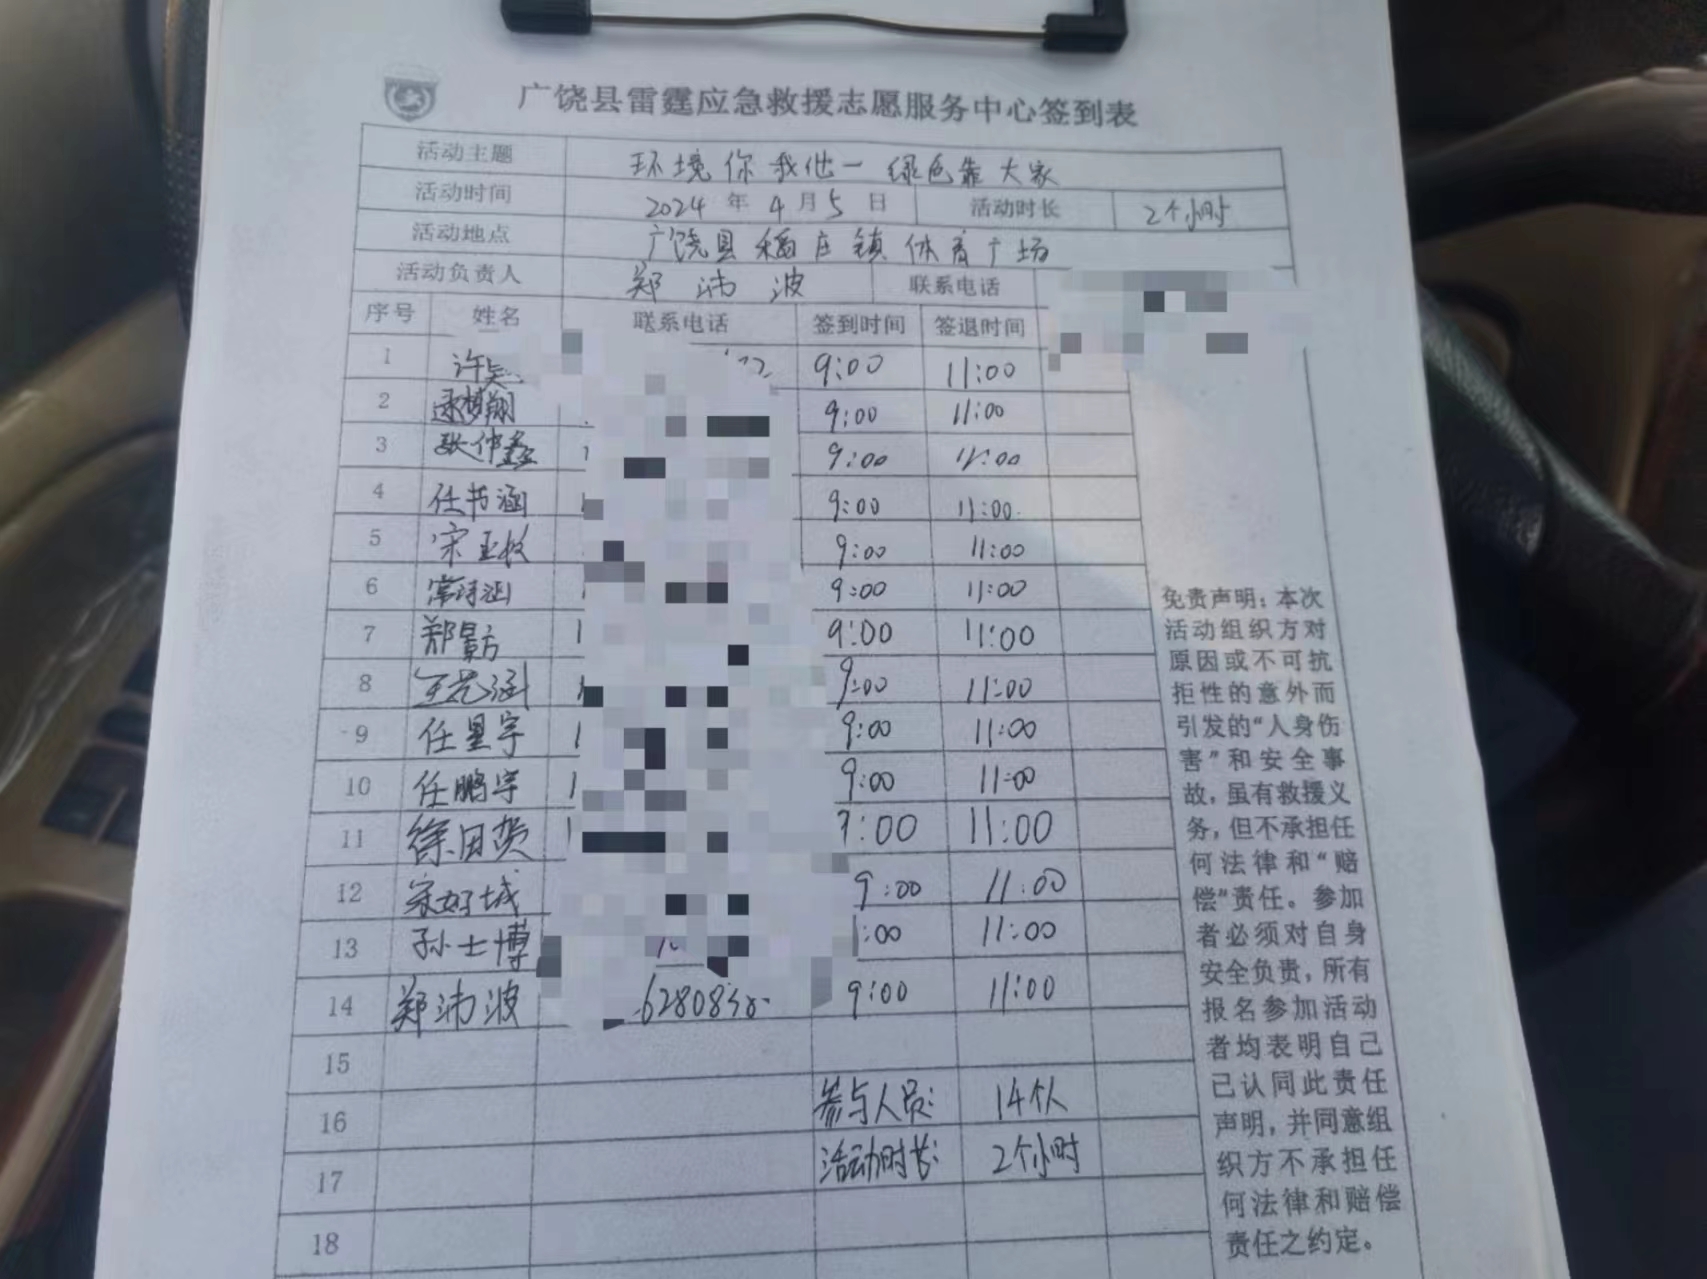 广饶县雷霆应急救援志愿服务中心签到表
活动主题 环境你我他一绿色靠大家
活动时间 2024年4月5日 活动时长 2个小时
活动地点 广饶县稻庄镇体育广场
活动负责人 郑沛波 联系电话
序号 姓名 联系电话 签到时间 签退时间
1 许 9:00 11:00
2 翔 9:00 11:00
3 仲鑫 9:00 11:00
4 任书涵 9:00 11:00
5 宋亚 9:00 11:00
6 常诗涵 9:00 11:00
7 郑景方 9:00 11:00
8 王艺涵 9:00 11:00
9 任星宇 9:00 11:00
10 任鹏宇 9:00 11:00
11 徐田贺 9:00 11:00
12 宋好城 9:00 11:00
13 孙士博 :00 11:00
14 郑沛波 9:00 11:00
15
16 参与人员: 14个人
17 活动时长: 2个小时
18
免责声明：本次
活动组织方对
原因或不可抗
拒性的意外而
引发的“人身伤
害”和安全事
故，虽有救援义
务，但不承担任
何法律和“赔
偿”责任。参加
者必须对自身
安全负责，所有
报名参加活动
者均表明自己
已认同此责任
声明，并同意组
织方不承担任
何法律和赔偿
责任之约定。